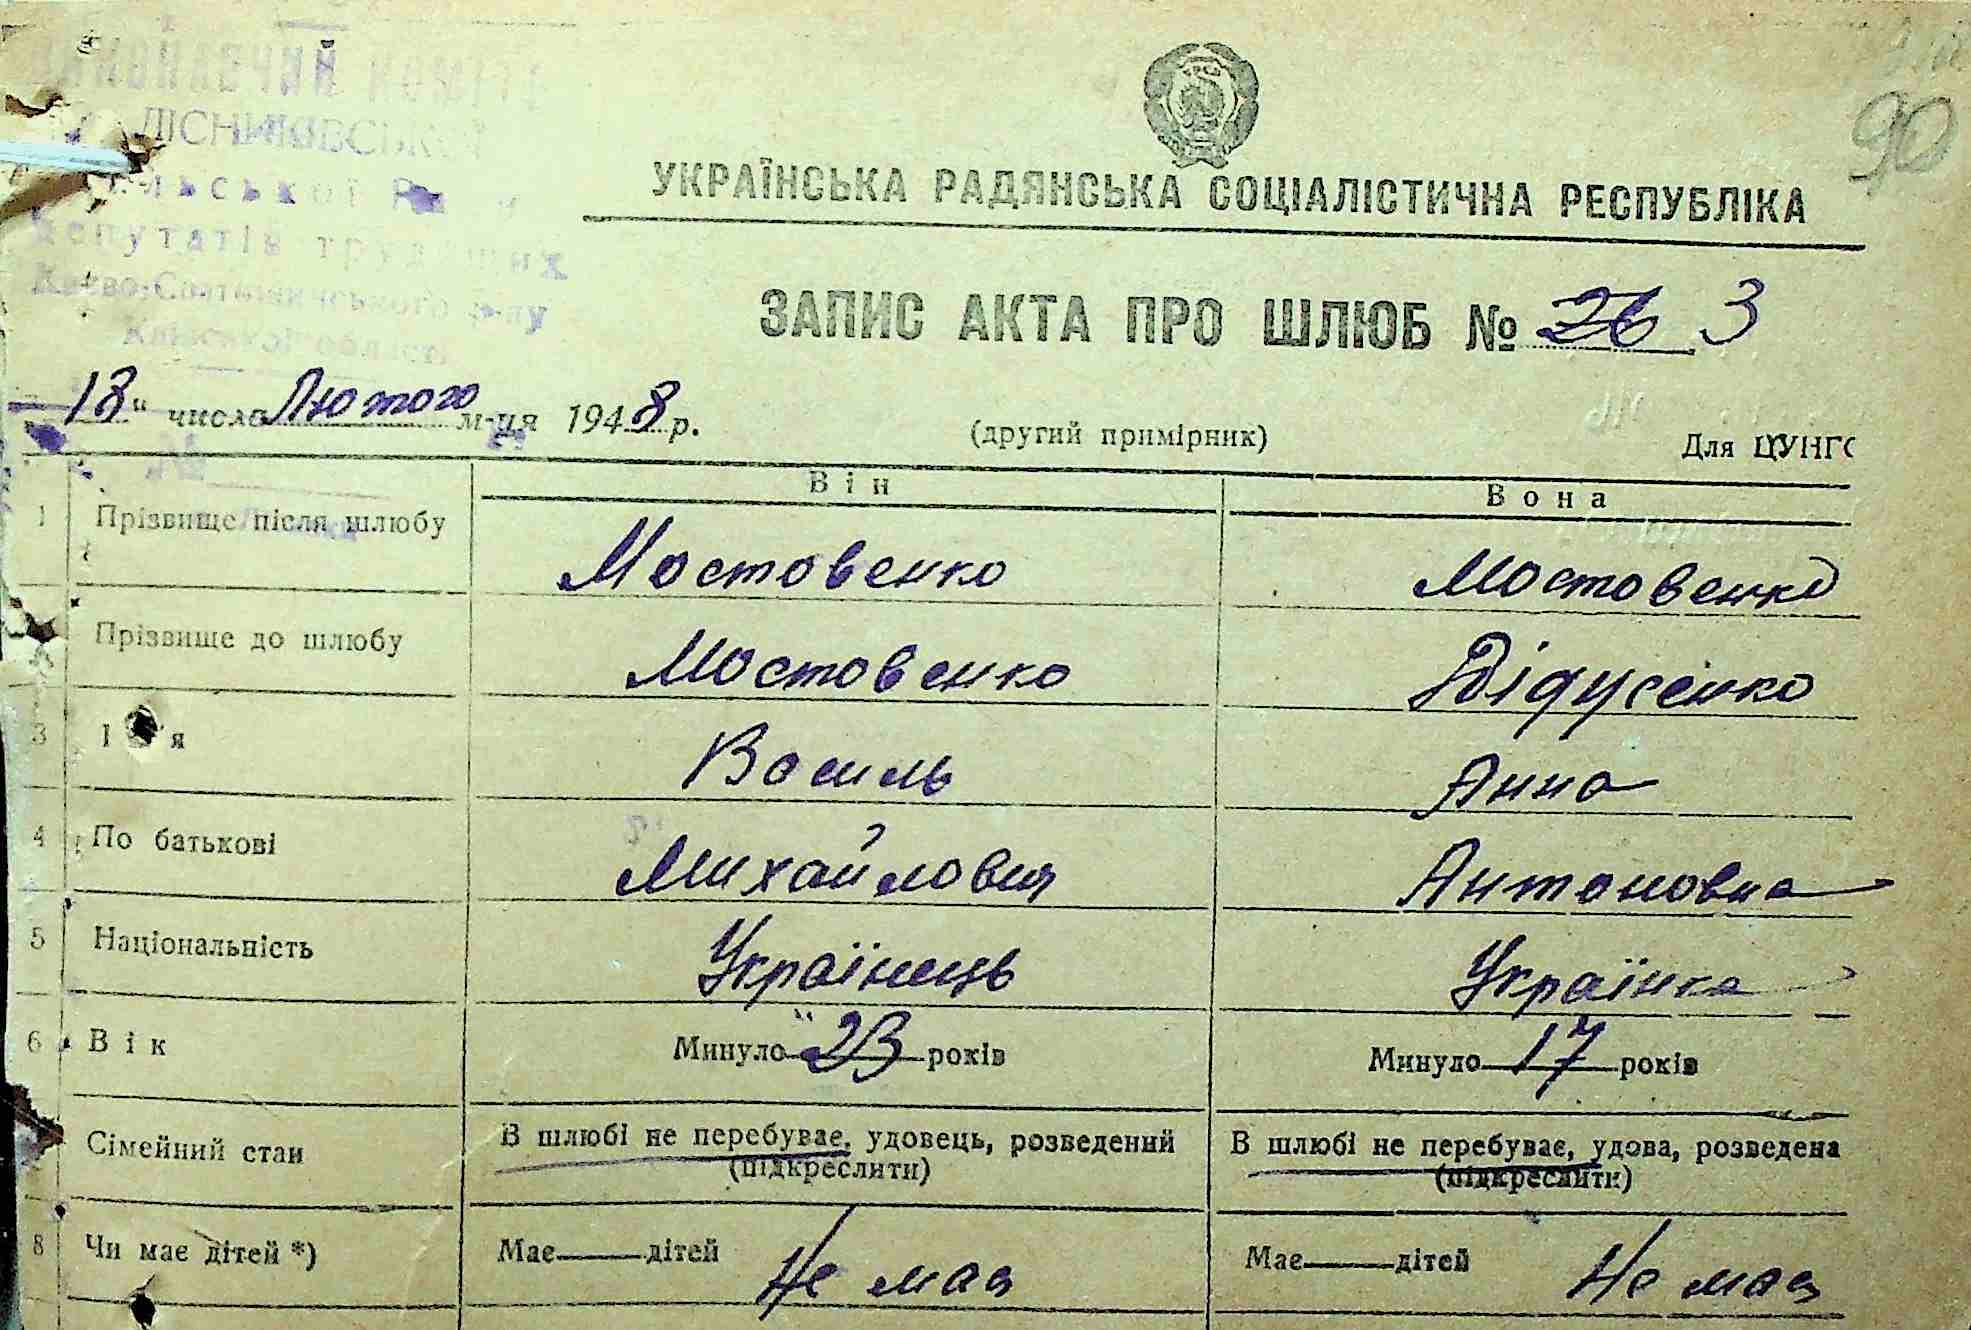 ВИКОНАВЧИЙ КОМІТЕ
ЛІСНИКІВСЬКОЇ
сільської Ради
депутатів трудящих
Києво-Святошинського р-ну
Київської області
90
УКРАЇНСЬКА РАДЯНСЬКА СОЦІАЛІСТИЧНА РЕСПУБЛІКА
ЗАПИС АКТА ПРО ШЛЮБ № 26 3
18" число Лютого м-ця 1948 р.
(другий примірник)
Для ЦУНГО
Він
Вона
1 Прізвище після шлюбу Мостовенко Мостовенко
Прізвище до шлюбу Мостовенко Дідусенко
3 І я Василь Анна
4 По батькові Михайлович Антоновна
5 Національність Українець Українка
6 Вік Минуло 23 років Минуло 17 років
Сімейний стан В шлюбі не перебуває, удовець, розведений В шлюбі не перебуває, удова, розведена
(підкреслити) (підкреслити)
8 Чи має дітей *) Має дітей Не має Має дітей Не має